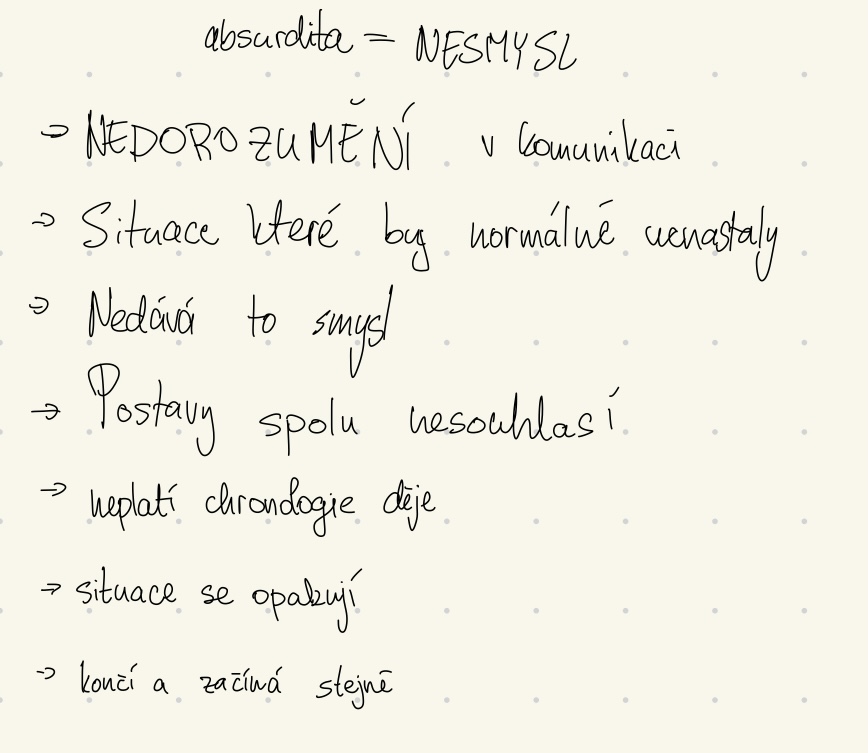 absurdita = NESMYSL
→ NEDOROZUMĚNÍ v komunikaci
→ Situace které by normálně nenastaly
→ Nedává to smysl
→ Postavy spolu nesouhlasí
→ neplatí chronologie děje
→ situace se opakují
→ končí a začíná stejně